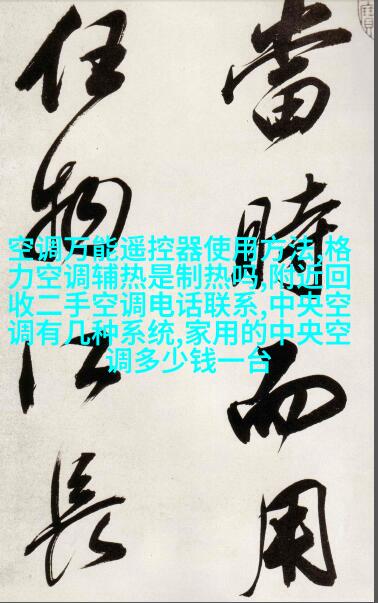 當時而用
任物以長
空调万能遥控器使用方法,格
力空调辅热是制热吗,附近回
收二手空调电话联系,中央空
调有几种系统,家用的中央空
调多少钱一台